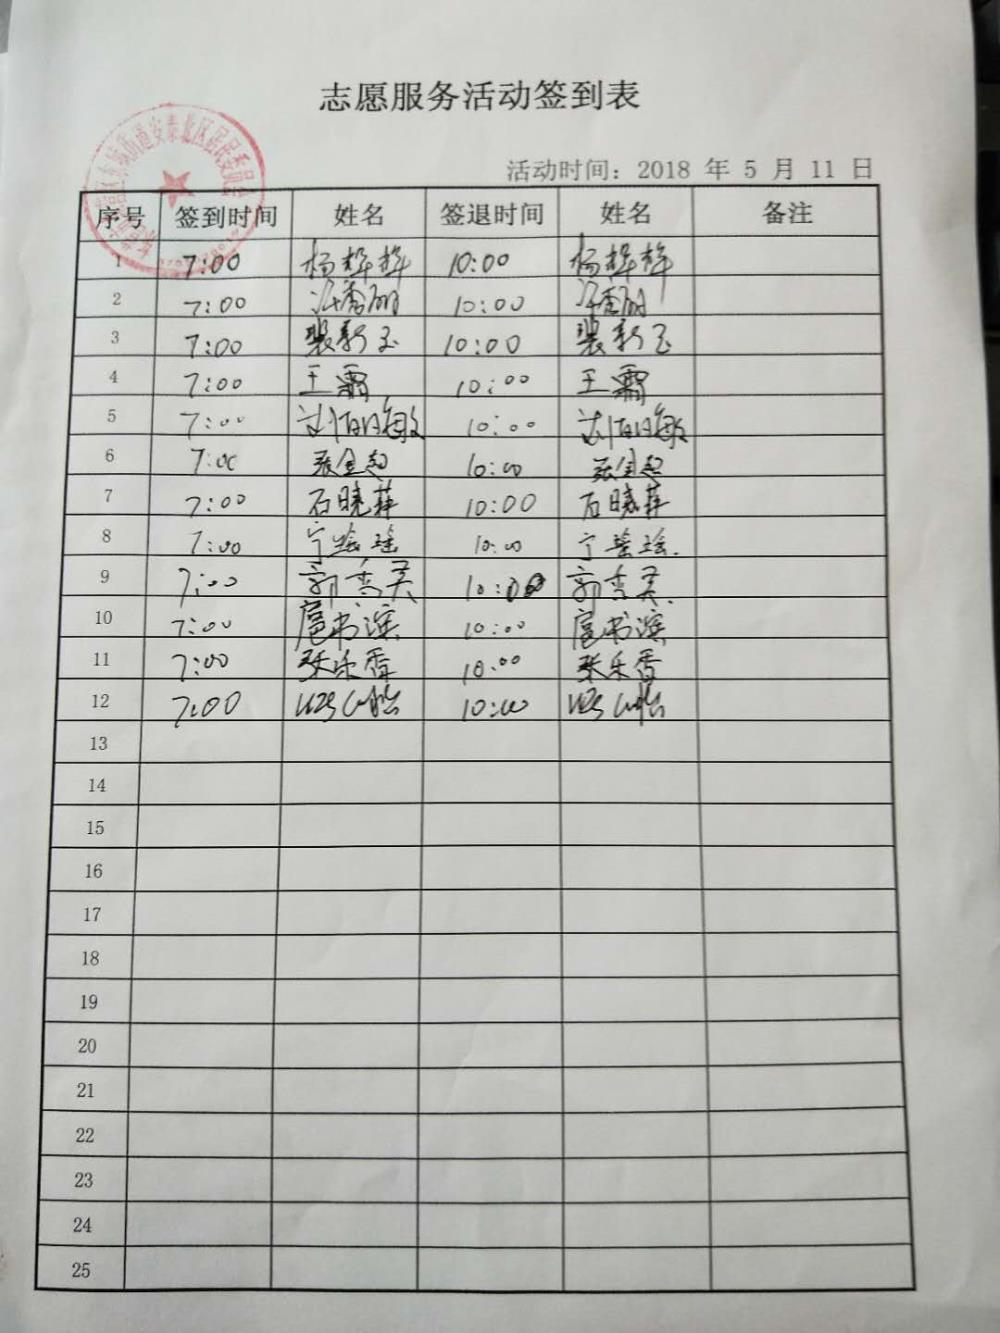 志愿服务活动签到表
活动时间：2018 年 5 月 11 日
序号 签到时间 姓名 签退时间 姓名 备注
1 7:00 杨梓梓 10:00 杨梓梓
2 7:00 10:00
3 7:00 裴新玉 10:00 裴新玉
4 7:00 王霜 10:00 王霜
5 7:00 10:00
6 7:00 张金超 10:00 张金超
7 7:00 石晓萍 10:00 石晓萍
8 7:00 10:00
9 7:00 郭秀英 10:00 郭秀英
10 7:00 扈书滨 10:00 扈书滨
11 7:00 张乐香 10:00 张乐香
12 7:00 10:00
13
14
15
16
17
18
19
20
21
22
23
24
25